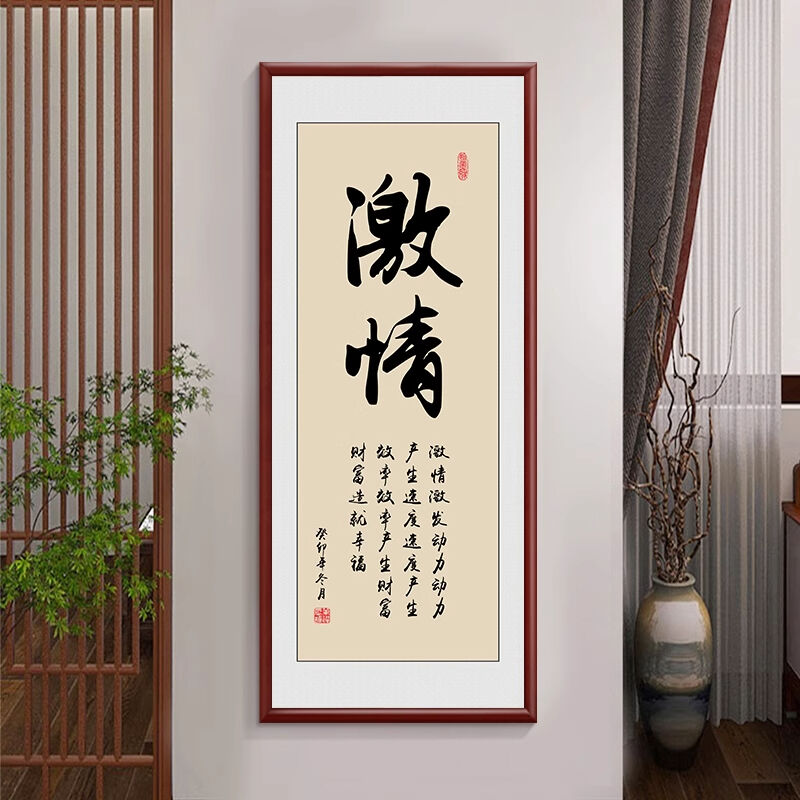 激情
激情激发动力动力
产生速度速度产生
效率效率产生财富
财富造就幸福
癸卯年冬月